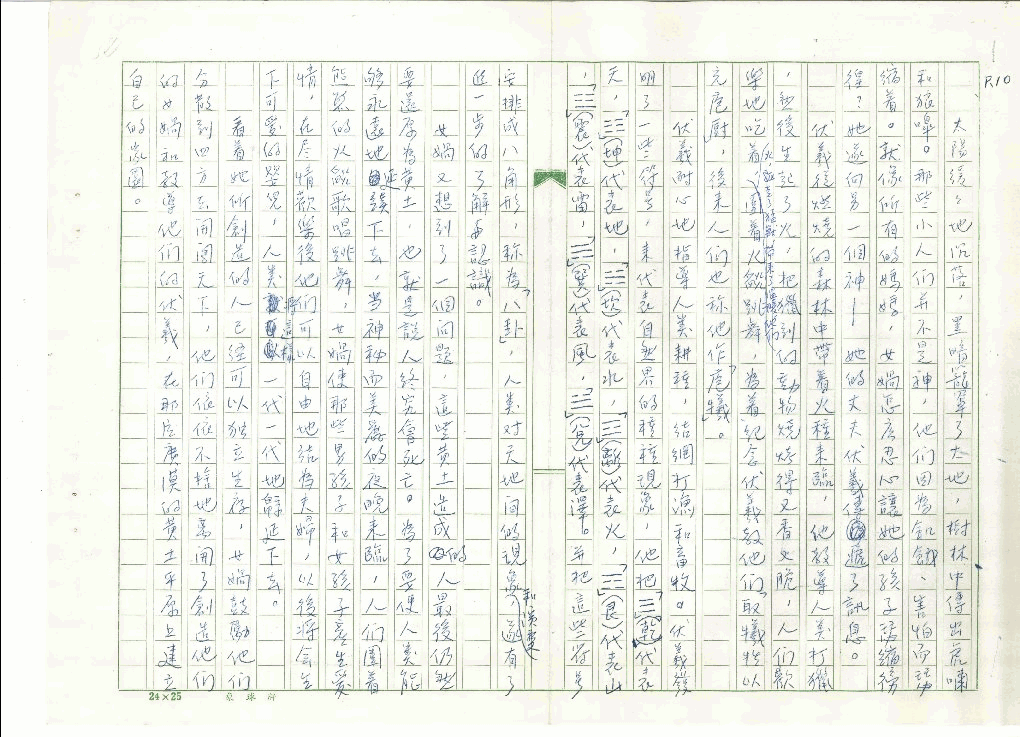 P.10
太陽緩々地沉落，黑暗籠罩了大地，樹林中傳出虎嘯
和狼嘷。那些小人們并不是神，他們因為飢餓、害怕而
縮着。就像所有的媽媽，女媧怎麼忍心讓她的孩子
得？她遂向另一個神—她的丈夫伏羲傳遞了訊息。
伏羲從燃燒的森林中帶着火種來臨，他教導人类打獵
，然後生起了火，把獵到的動物燒烤得又香又脆，人们歡
樂地吃着，圍着火燄跳舞，為着紀念伏羲教他們「取犧牲以
充庖廚」，後來人們也称他作「庖犧」。
伏羲耐心地指導人类耕種，結網打漁和畜牧。伏羲發
明了一些符号，來代表自然界的種種現象，他把「☰」（乾）代表
天，「☷」（坤）代表地，「☵」（坎）代表水，「☲」（離）代表火，「☶」（艮）代表山
，「☳」（震）代表雷，「☴」（巽）代表風，「☱」（兌）代表澤。并把這些符号
安排成八角形，称為「八卦」，人类对天地间的現象，遂有了
進一步的了解和認識。
女媧又想到了一個问題，這些黄土造成的人最後仍然
要還原為黄土，也就是說人終究會死亡。為了要使人类能
够永遠地延續下去，当神秘而美麗的夜晚來臨，人们圍着
熊熊的火燄歌唱跳舞，女媧使那些男孩子和女孩子產生愛
情，在尽情歡樂後他们可以自由地結為夫婦，以後將会生
下可愛的嬰兒，人类將這樣一代一代地綿延下去。
看着她所創造的人已經可以独立生存，女媧鼓勵他们
分散到四方去開闢天下，他们依依不捨地离開了創造他们
的女媧和教導他们的伏羲，在那片廣漠的黄土平原上建立
自己的家園。
24×25